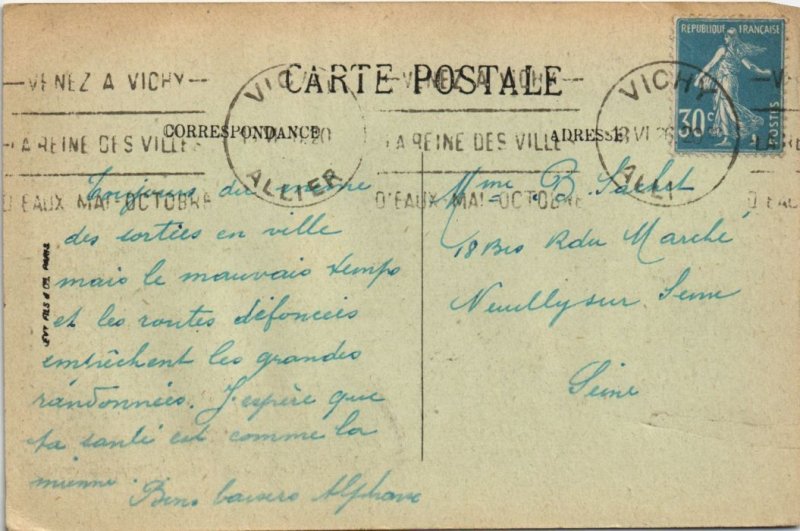 RÉPUBLIQUE FRANÇAISE
30c
POSTES
VICHY
ALLIER
VICHY
18 VI 26
ALLI
—VENEZ A VICHY—
LA REINE DES VILLES
D'EAUX MAI-OCTOBRE
—VENEZ A VICHY—
LA REINE DES VILLE
D'EAUX MAI-OCTOBRE
CARTE POSTALE
CORRESPONDANCE
ADRESSE
Toujours du
des sorties en ville
mais le mauvais temps
et les routes défoncées
empêchent les grandes
randonnées. J'espère que
ta santé est comme la
mienne.
Bons baisers Alphonse
Mme B.
18 Bis R du Marché
Neuilly sur Seine
Seine
LEVY FILS & Cie PARIS